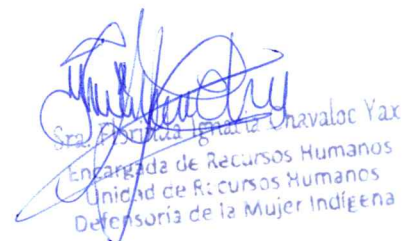 Sra. Ignacia Chavaloc Yax
Encargada de Recursos Humanos
Unidad de Recursos Humanos
Defensoría de la Mujer Indígena